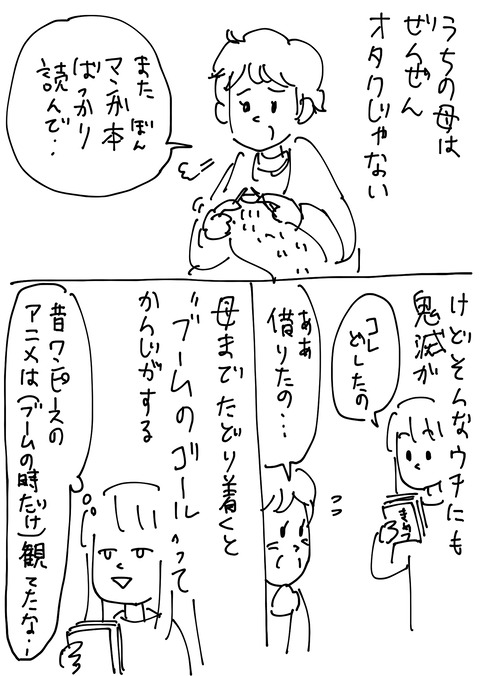 うちの母は
ぜんぜん
オタクじゃない
また
マンガ本
ぼん
ばっかり
読んで・・
けどそんなウチにも
鬼滅が
コレ
どしたの
きめつ
ああ
借りたの・・・
母までたどり着くと
"ブームのゴール"って
かんじがする
昔ワンピースの
アニメは(ブームの時だけ)観てたな・・